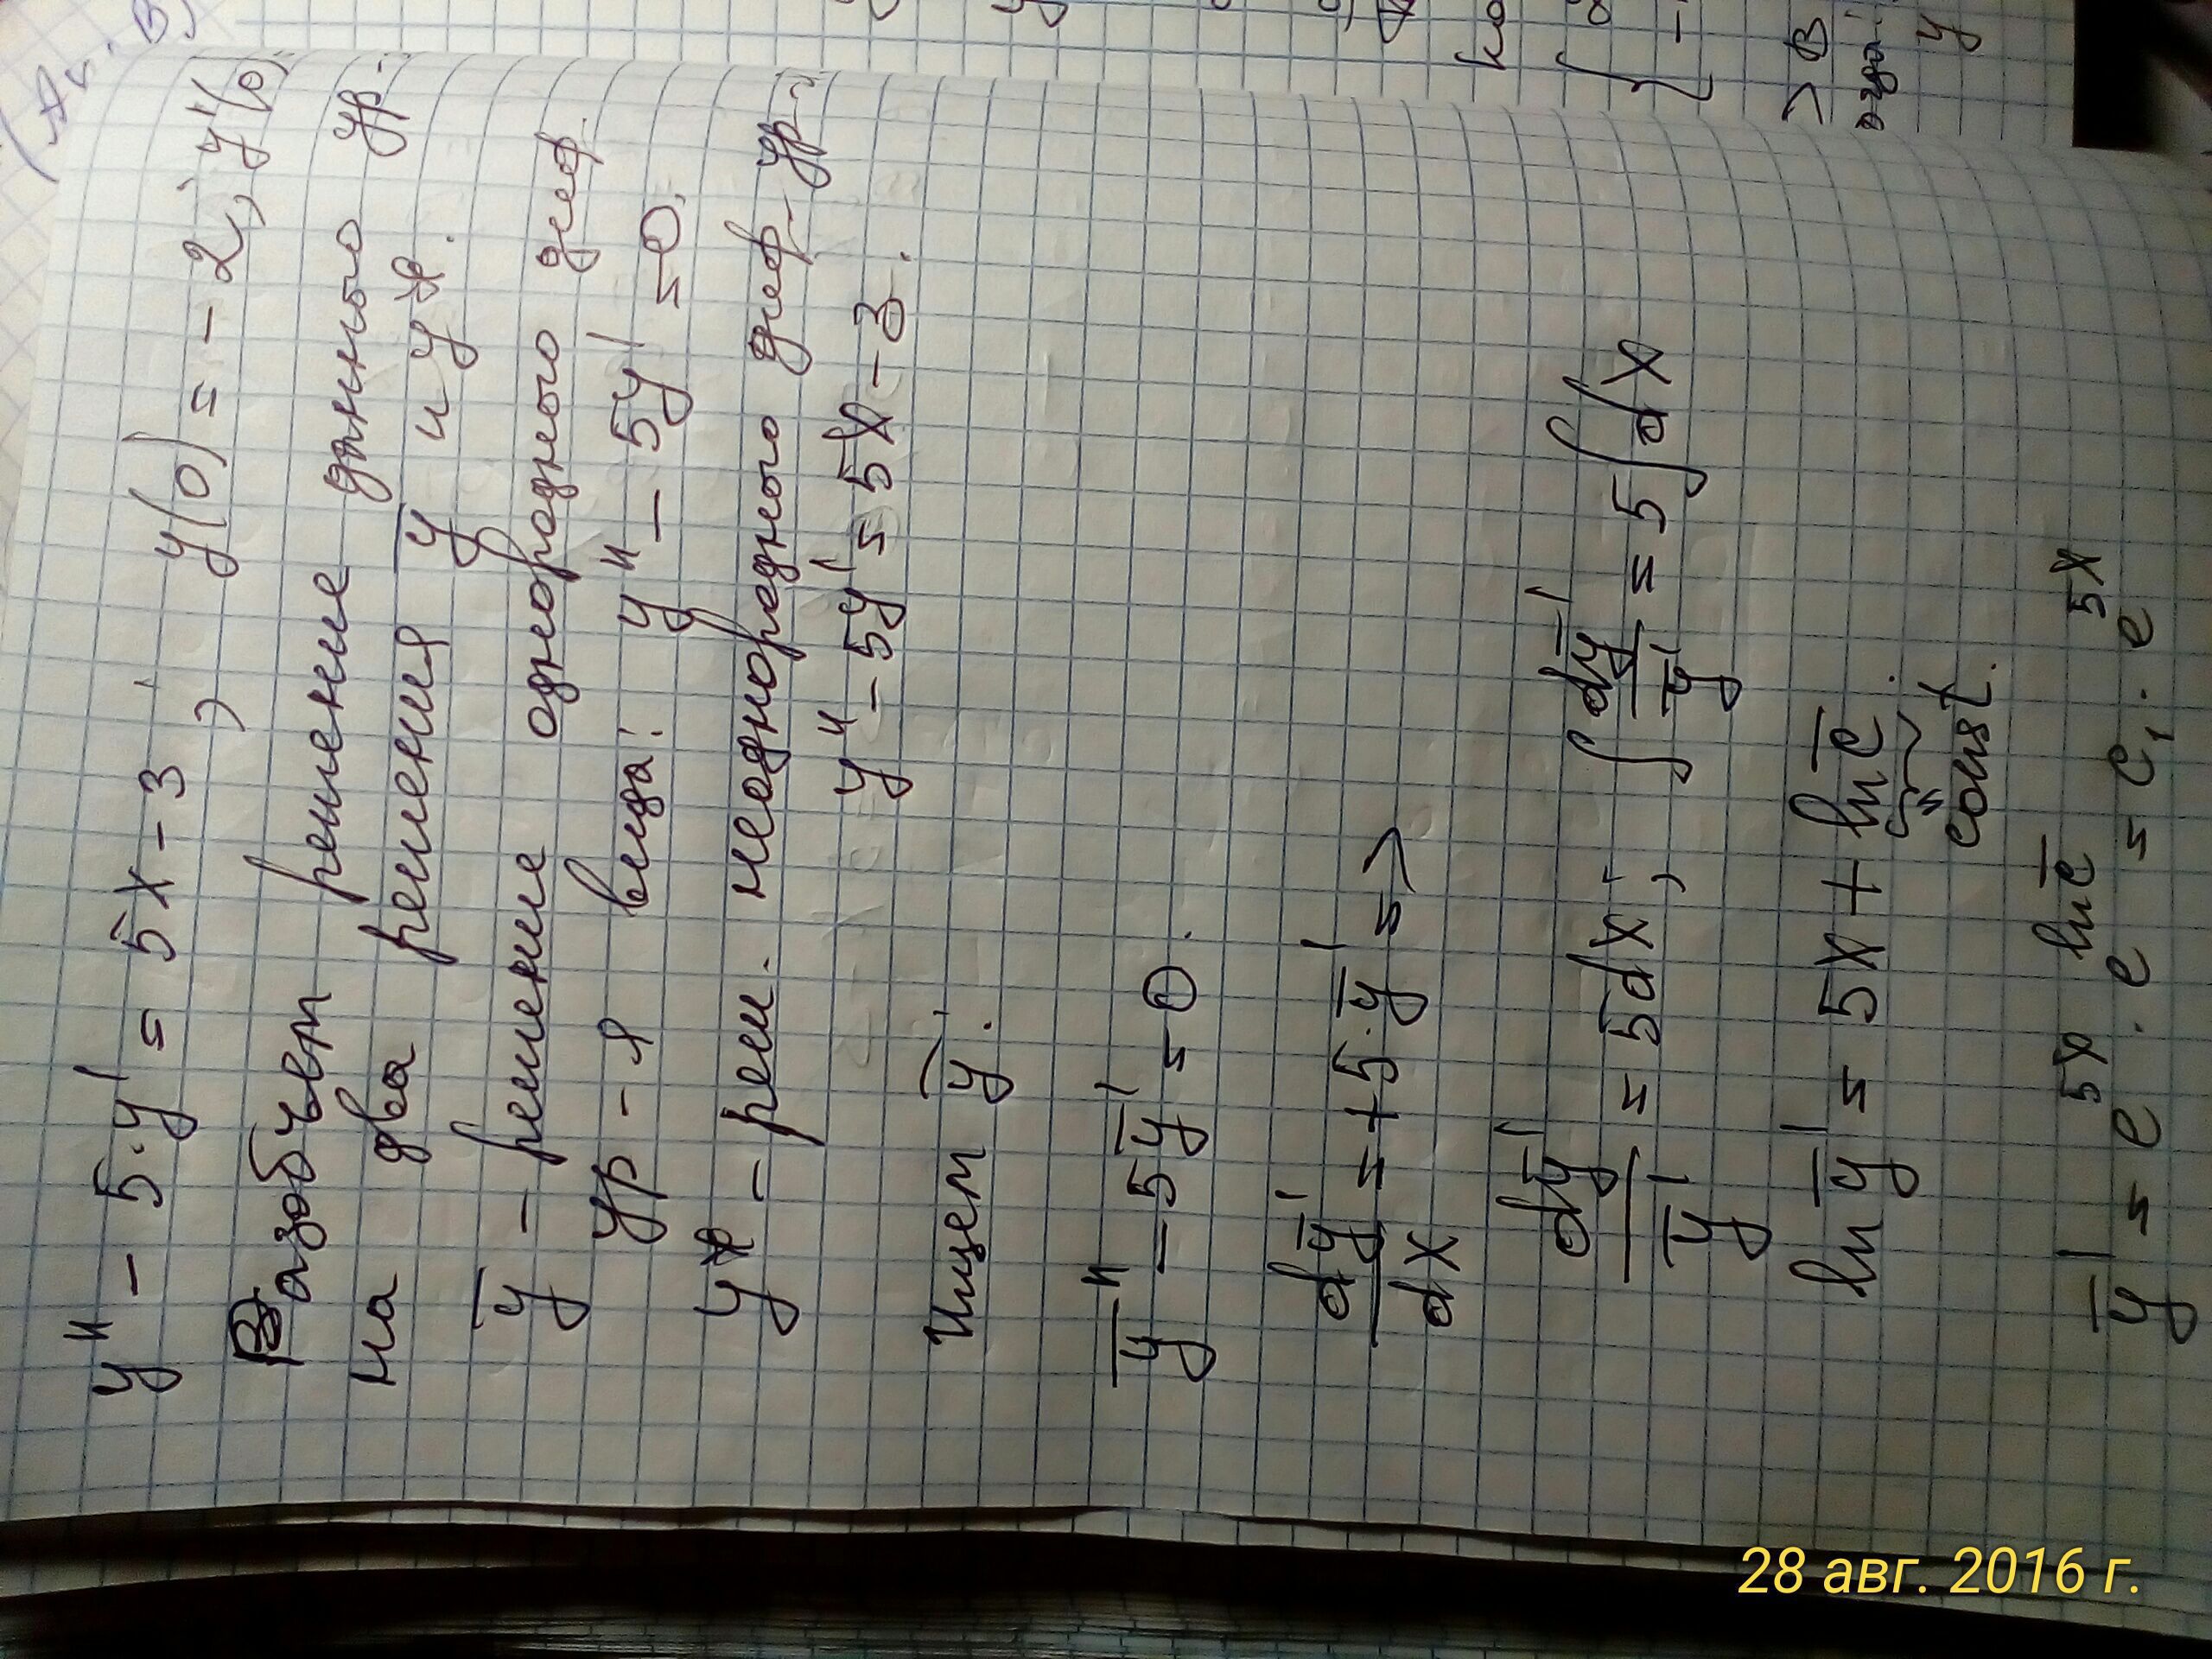 y'' - 5·y' = 5x - 3, y(0) = -2, y'(0)
Разобьем решение данного ур-
на два решения y̅ и y*.
y̅ - решение однородного диф.
ур-я вида: y'' - 5y' = 0.
y* - реш. неоднородного диф. ур-
y'' - 5y' = 5x - 3.
Ищем y̅.
y̅'' - 5y̅' = 0.
dy̅'/dx = +5·y̅' =>
dy̅'/y̅' = 5dx; ∫ dy̅'/y̅' = 5∫dx
ln y̅' = 5x + ln c̅.
const.
y̅' = e^5x · e^ln c̅ = c₁ · e^5x
28 авг. 2016 г.